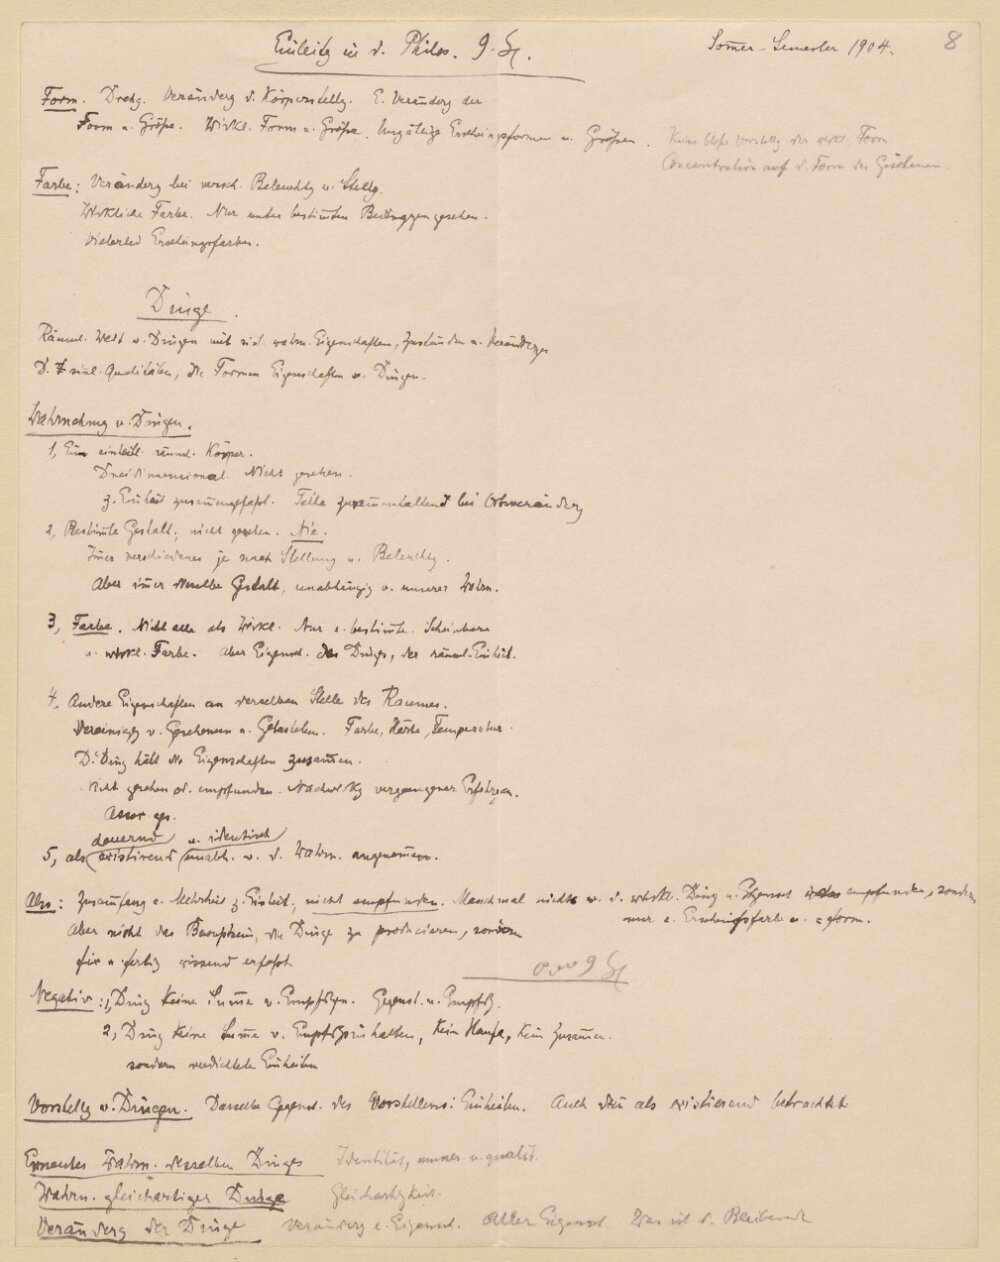 Einleitg in d. Philos. 9. St.
Sommer-Semester 1904.
8
Form. Drehg. Veränderg d. Körperstellg. E. Veränderg der
Form u. Größe. Wirkl. Form u. Größe. Unzählige Erscheingsformen u. Größen.
Keine bloße Vorstellg der wirkl. Form.
Concentration auf d. Form des Gesehenen.
Farbe: Veränderg bei versch. Beleuchtg u. Stellg.
Wirkliche Farbe. Nur unter bestimten Bedinggen gesehen.
Vielerlei Erscheingsfarben.
Dinge.
Räuml. Welt v. Dingen mit wahrn. Eigenschaften, Zuständen u. Verändergen
D. sinl. Qualitäten, die Formen Eigenschaften v. Dingen.
Wahrnehmg v. Dingen.
1, Ein einheitl. räuml. Körper.
Dreidimensional. Nicht gesehen.
z. Einheit zusammengefaßt. Teile zusammenhaltend bei Ortsveränderg
2, Bestimte Gestalt, nicht gesehen. Nie.
Imer verschiedenes je nach Stellung u. Beleuchtg.
Aber imer dieselbe Gestalt, unabhängig v. unserer Wahrn.
3, Farbe. Nicht alle als Wirkl. Nur e. bestimte. Scheinbare
u. wirkl. Farbe. Aber Eigensch. des Dinges, der räuml. Einheit.
4, Andere Eigenschaften an derselben Stelle des Raumes.
Vereinigg v. Gesehenem u. Getastetem. Farbe, Härte, Temperatur.
D. Ding hält die Eigenschaften zusamen.
Nicht gesehen od. empfunden. Nachwirkg vergangener Erfahrgen.
Assoc. ges.
dauernd u. identisch
5, als existirend unabh. v. d. Wahrn. angenomen.
Also: Zusamfassg e. Mehrheit z. Einheit, nicht empfunden. Manchmal nichts v. d. wirkl. Ding u. Eigensch. empfunden, sondern
nur e. Erscheingsfarbe u. = form.
Aber nicht das Bewußtsein, die Dinge zu produciren, sondern
fix u. fertig wissend erfaßt.
9 St.
Negativ: 1, Ding keine Summe v. Empfdgen. Gegenst. u. Empfdg.
2, Ding keine Summe v. Empfdgsinhalten, kein Haufe, kein Zusamen.
sondern verdichtete Einheiten
Vorstellg v. Dingen. Dasselbe Gegenst. des Vorstellens: Einheiten. Auch dan als existierend betrachtet
Erneutes Wahrn. desselben Dinges Identität, numer. u. qualit.
Wahrn. gleichartiger Dinge Gleichartigkeit.
Veränderg der Dinge Veränderg e. Eigensch. Aller Eigensch. Was ist d. Bleibende